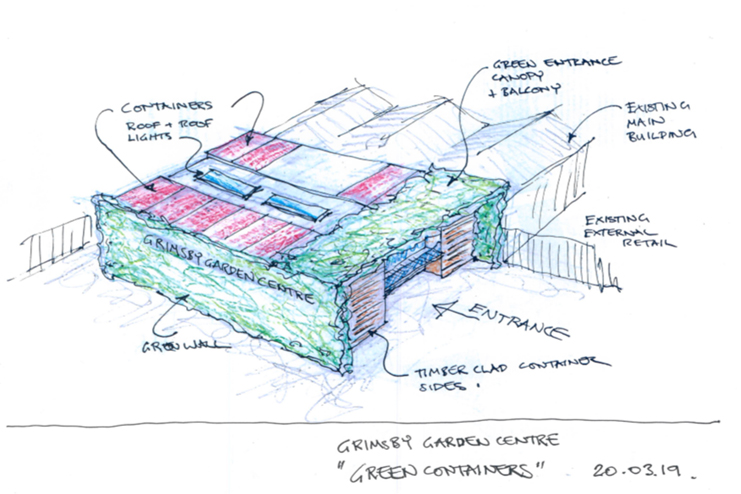 GREEN ENTRANCE
CANOPY
+ BALCONY
CONTAINERS
ROOF + ROOF
LIGHTS
EXISTING
MAIN
BUILDING
EXISTING
EXTERNAL
RETAIL
GRIMSBY GARDEN CENTRE
ENTRANCE
GREEN WALL
TIMBER CLAD CONTAINER
SIDES.
GRIMSBY GARDEN CENTRE
"GREEN CONTAINERS" 20.03.19.